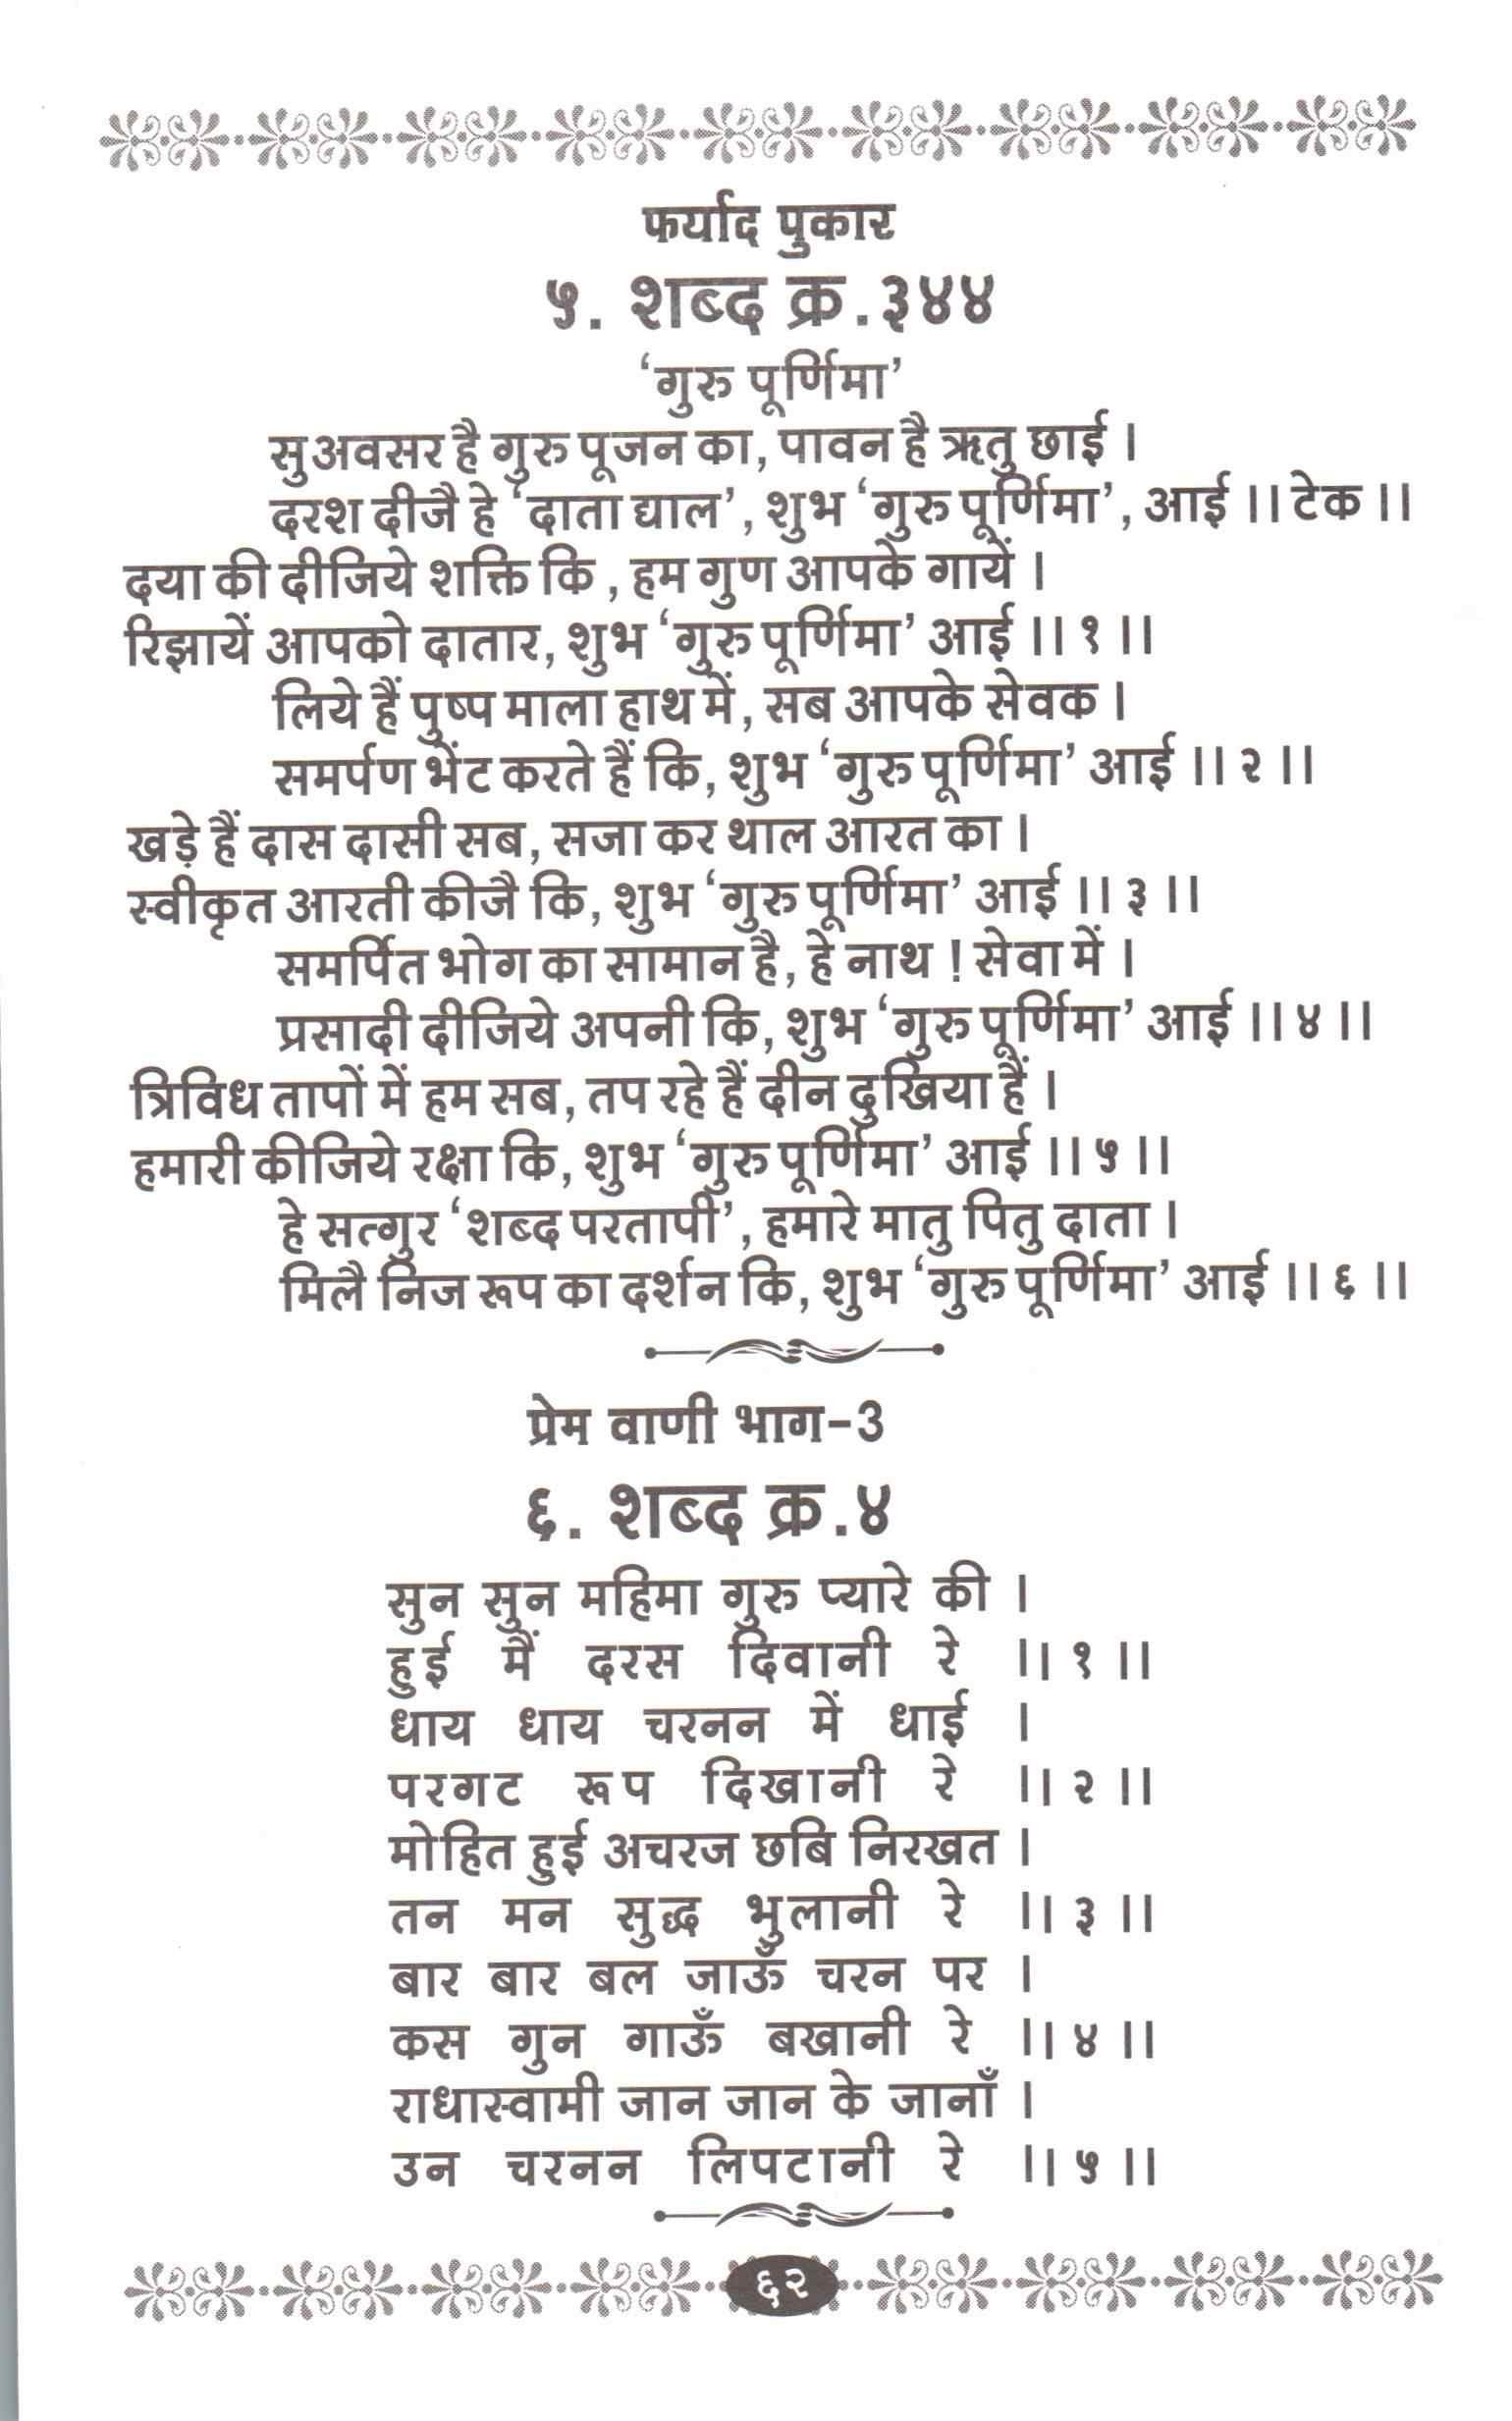 फर्याद पुकार
५. शब्द क्र.३४४
‘गुरु पूर्णिमा’
सुअवसर है गुरु पूजन का, पावन है ऋतु छाई ।
दरश दीजै हे ‘दाता द्याल’, शुभ ‘गुरु पूर्णिमा’, आई ।। टेक ।।
दया की दीजिये शक्ति कि , हम गुण आपके गायें ।
रिझायें आपको दातार, शुभ ‘गुरु पूर्णिमा’ आई ।। १ ।।
लिये हैं पुष्प माला हाथ में, सब आपके सेवक ।
समर्पण भेंट करते हैं कि, शुभ ‘गुरु पूर्णिमा’ आई ।। २ ।।
खड़े हैं दास दासी सब, सजा कर थाल आरत का ।
स्वीकृत आरती कीजै कि, शुभ ‘गुरु पूर्णिमा’ आई ।। ३ ।।
समर्पित भोग का सामान है, हे नाथ ! सेवा में ।
प्रसादी दीजिये अपनी कि, शुभ ‘गुरु पूर्णिमा’ आई ।। ४ ।।
त्रिविध तापों में हम सब, तप रहे हैं दीन दुखिया हैं ।
हमारी कीजिये रक्षा कि, शुभ ‘गुरु पूर्णिमा’ आई ।। ५ ।।
हे सत्गुर ‘शब्द परतापी’, हमारे मातु पितु दाता ।
मिलै निज रूप का दर्शन कि, शुभ ‘गुरु पूर्णिमा’ आई ।। ६ ।।
प्रेम वाणी भाग-3
६. शब्द क्र.४
सुन सुन महिमा गुरु प्यारे की ।
हुई मैं दरस दिवानी रे ।। १ ।।
धाय धाय चरनन में धाई ।
परगट रूप दिखानी रे ।। २ ।।
मोहित हुई अचरज छबि निरखत ।
तन मन सुद्ध भुलानी रे ।। ३ ।।
बार बार बल जाऊँ चरन पर ।
कस गुन गाऊँ बखानी रे ।। ४ ।।
राधास्वामी जान जान के जानाँ ।
उन चरनन लिपटानी रे ।। ५ ।।
६२